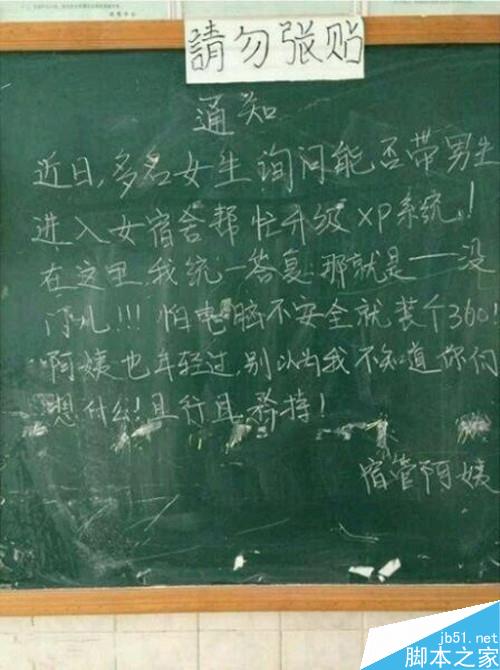 請勿张贴
通知
近日,多名女生询问能否带男生
进入女宿舍帮忙升级XP系统!
在这里我统一答复.那就是一没
门儿!!!怕电脑不安全就装个360!
阿姨也年轻过,别以为我不知道你们
想什么!且行且矜持!
宿管阿姨
jb51.net
脚本之家